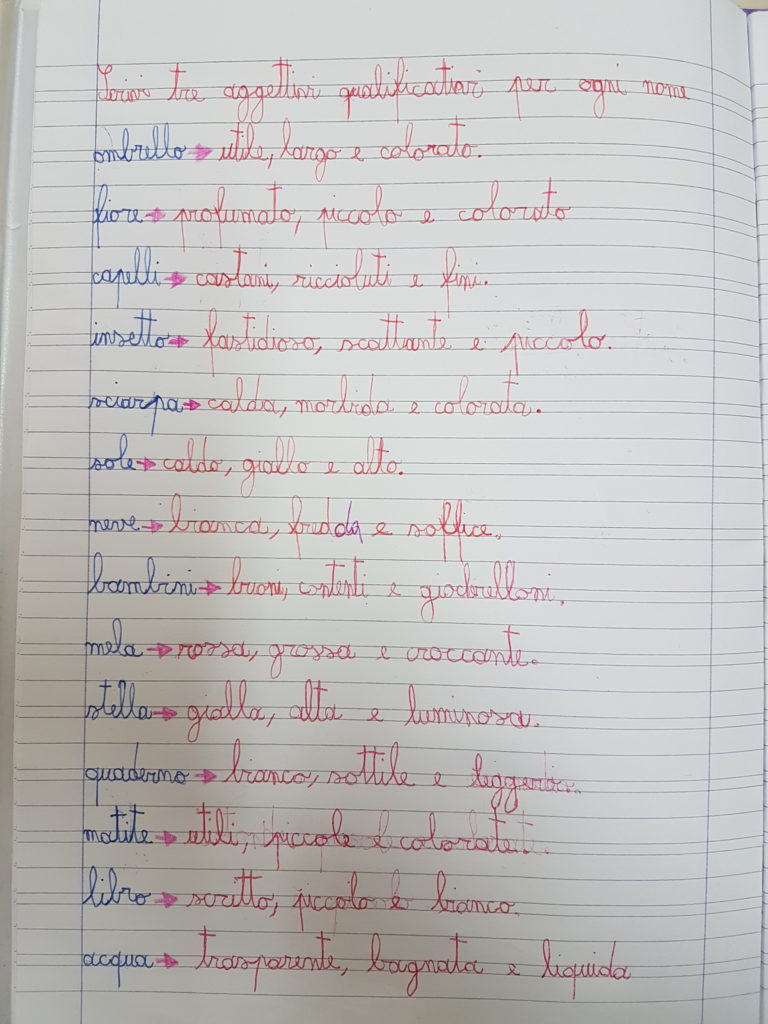 Scrivi tre aggettivi qualificativi per ogni nome
ombrello → utile, largo e colorato.
fiore → profumato, piccolo e colorato
capelli → castani, riccioluti e fini.
insetto → fastidioso, scattante e piccolo.
sciarpa → calda, morbida e colorata.
sole → caldo, giallo e alto.
neve → bianca, fredda e soffice.
bambini → buoni, contenti e giocherelloni.
mela → rossa, grossa e croccante.
stella → gialla, alta e luminosa.
quaderno → bianco, sottile e leggero.
matite → utili, piccole e colorate.
libro → scritto, piccolo e bianco.
acqua → trasparente, bagnata e liquida